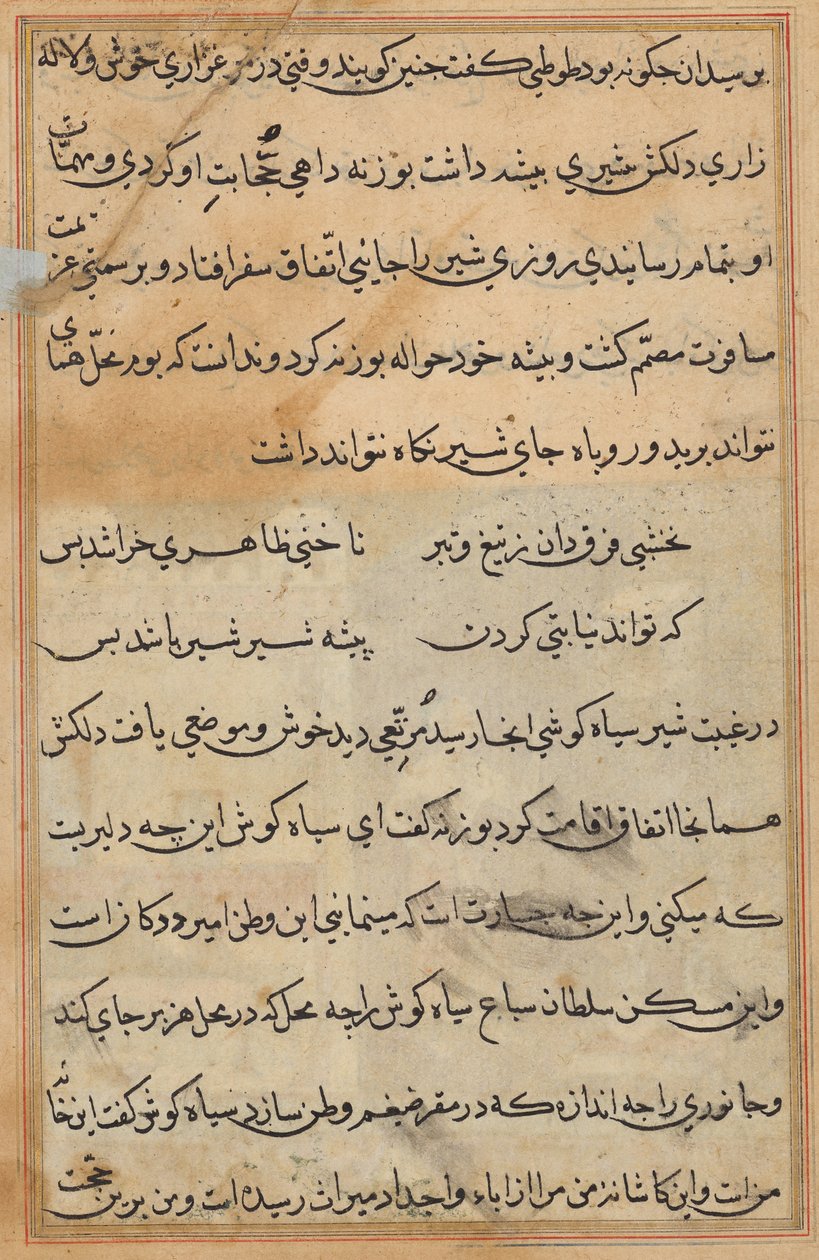 برسیدان جکونه بود طوطی کفت جنین کویند وقتی در مرغزاری خوش ولاله
زاری دلکش شیری بیشه داشت بوزنه داهی حُجّابتِ او کردی و مهمّات
او بتمام رسانیدی روزی شیر را جائی اتّفاق سفر افتاد و بر سمتی عزیمت
مسافرت مصمّم کشت و بیشه خود حواله بوزنه کرد و ندانست که بوم محلّ همای
نتواند برید و روباه جای شیر نکاه نتواند داشت
نخشبی فرق دان ز تیغ و تبر ناخنی ظاهری خراشد بس
که تواند نیابتی کردن پیشه شیر شیر باشد بس
در غیبت شیر سیاه کوشی انجا رسید مُرتّعی دید خوش و موضعی یافت دلکش
همانجا اتفاق اقامت کرد بوزنه کفت ای سیاه کوش این چه دلیریت
که میکنی و این جه جسارت است که مینمایی این وطن امیر ددکان است
و این مسکن سلطان سباع سیاه کوش را چه محل که در محل هزبر جای کند
و جانوری را جه اندازه که در مقر ضیغم وطن سازد سیاه کوش کفت این خانه
من است و این کاشانهٔ من مرا از اباء و اجداد میراث رسیده است و من برین حجّت